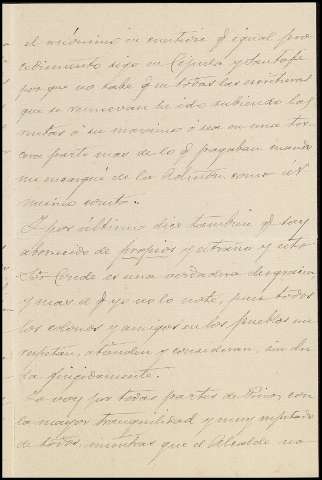 el asimismo in cuestion q igual pro
cedimiento sigo en Cépeda y Santafé
por que no sabe q en todas las escrituras
que se renuevan he ido subiendo las
rentas ó su maximo ó sea en una ter
cera parte mas de lo q pagaban cuando
me encargué de la Admon. como us
mismo
Y por último dice tambien q soy
aborrecido de propios y extraños y esto
Sor Conde es una verdadera desgracia
y mas el q yo no lo note, pues todos
los colonos y amigos en los pueblos me
respetan, atienden y consideran, sin du
da fingidamente.
Yo voy por todas partes de Pina, con
la mayor tranquilidad y muy respetado
de todos, mientras que el Alcalde no